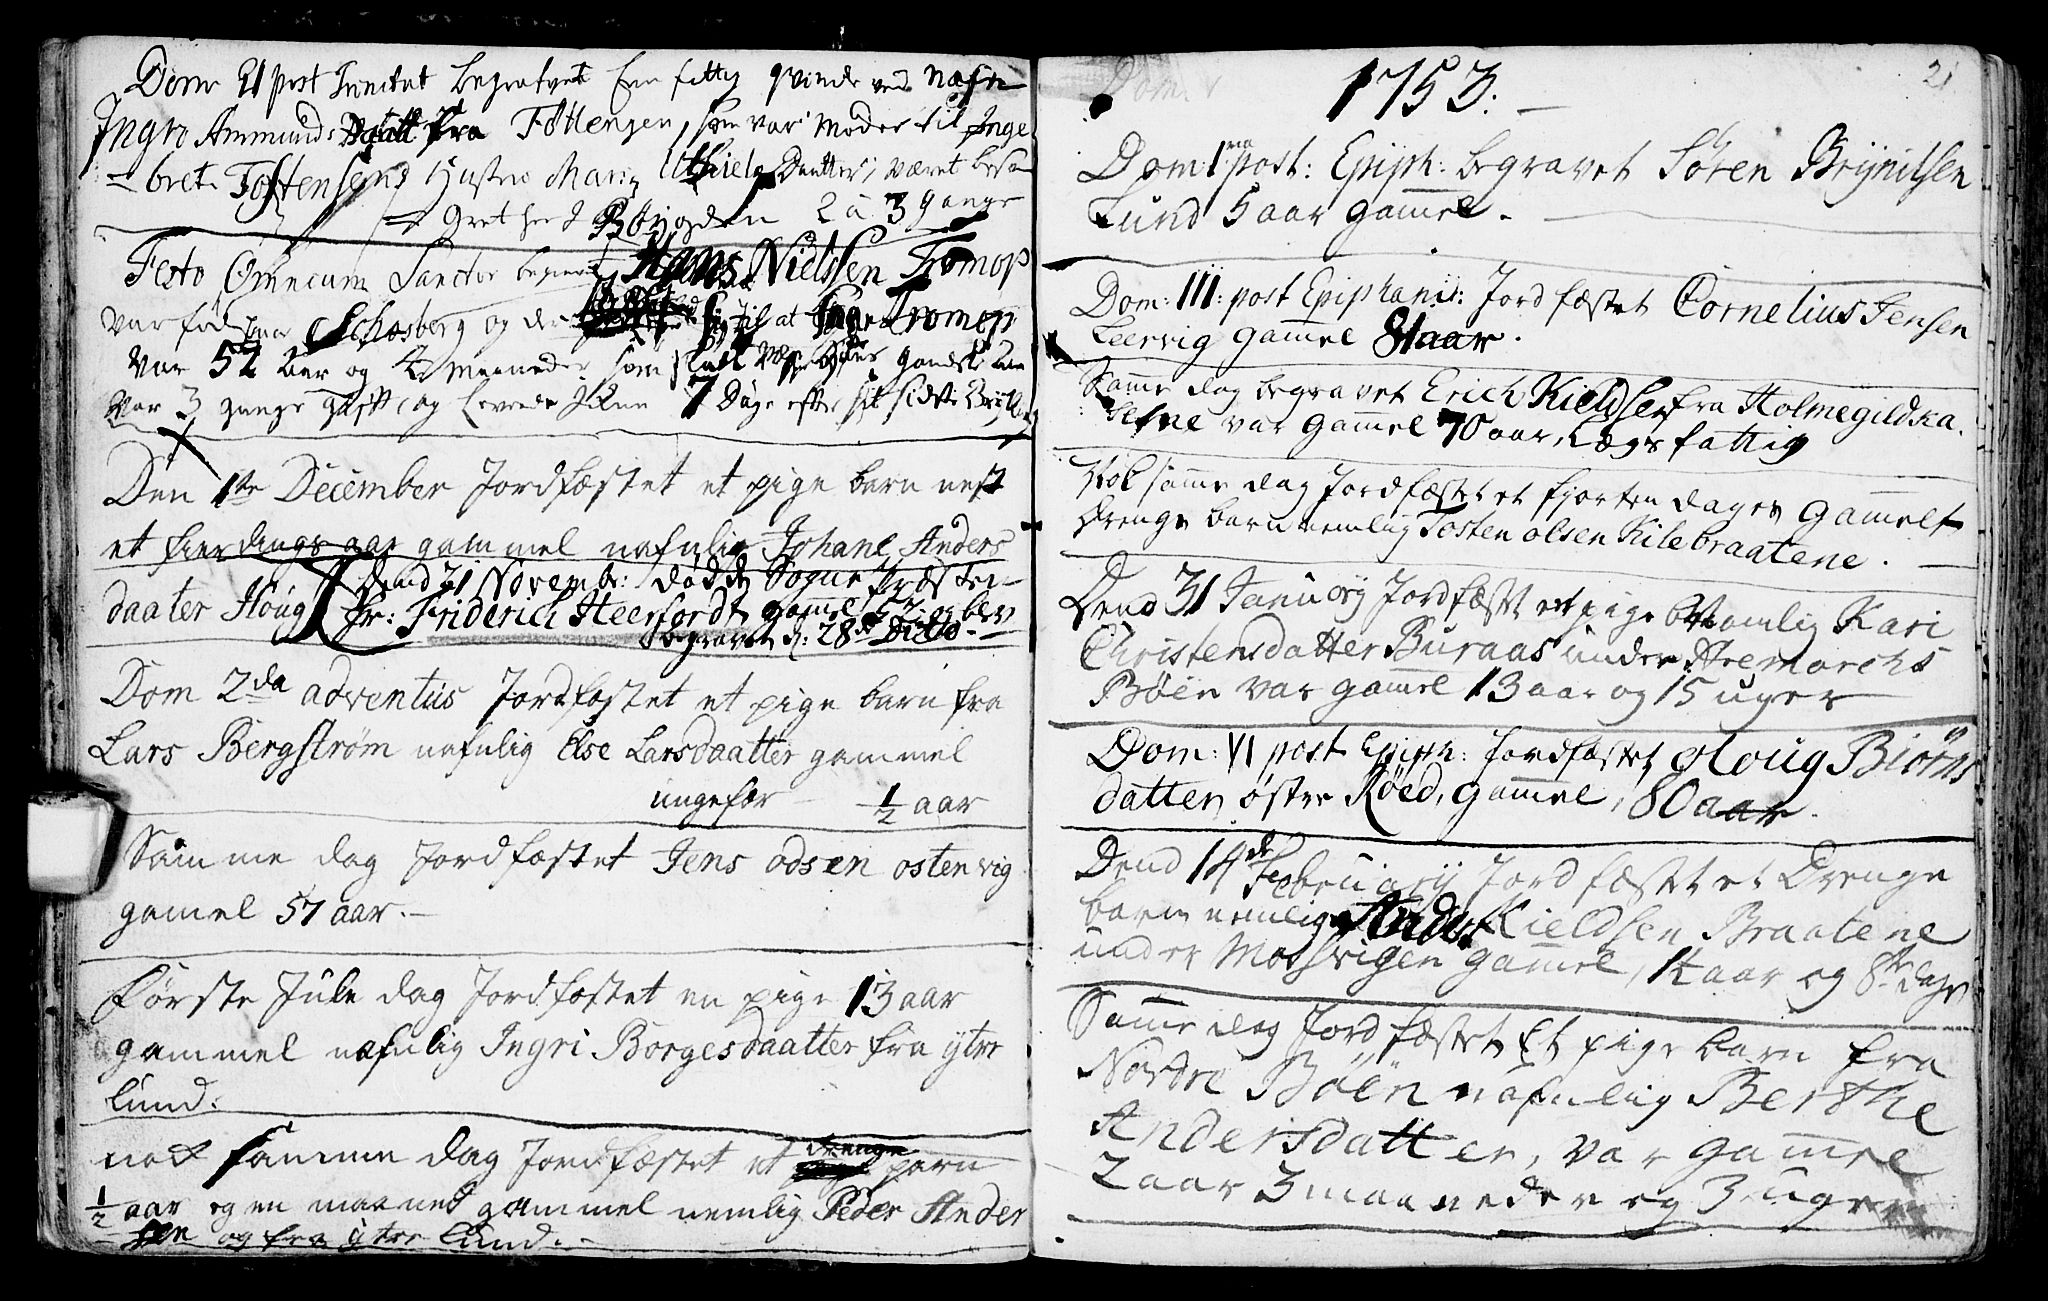 Dom 21 post Trinitat begravet En fattig qvinde ved nafn
Ingro Ammunds Daatt fra Tøttengen, som var Moder til Inge
-bret Tostensens Hustru Mari Daatter, været
her I Bøygden 2 a 3 gange
Festo Omnium Sanctor begravet Hans Nielssen Tromop
var fød paa Schosberg og Tromop
var 52 aar og 4 maaneder som skall
var 3 gange gift, og levede ikun 7 Dage efter sit sidste Brylløp
Den 1te December Jordfæstet et pige barn nest
et fierdings aar gammel nafnlig Johane Anders
daater Houg
Dend 21 Novembr: døde Sogne Præsten
Hr: Friderich Heerfordt gammel og blev
begravet d: 28de Dito.
Dom 2da adventus Jordfæstet et pige barn fra
Lars Bergstrøm nafnlig Else Larsdaatter gammel
ungefær 1/2 aar
Samme dag Jordfæstet Jens odsen ostenvig
gamel 57 aar.
Første Jule dag Jordfæstet en pige 13 aar
gammel nafnlig Ingri Borgesdaatter fra ytre
Lund.
nok samme dag Jordfæstet et drenge parn
1/2 aar og en maaned gammel nemlig Peder Ander
sen og fra ytre Lund.
21
1753.
Dom: 1ma post: Epiph: begravet Søren Brynilsen
Lund 5 aar gamel.
Dom: III: post Epiphanii: Jordfæstet Cornelius Jensen
Leervig gamel 81 aar.
Samme dag begravet Erich Kieldsen fra Holmegildka.
var gamel 70 aar, Lægs fattig
Nok samme dag Jordfæstet et fjorten dages gamelt
Drenge barn nemlig Tosten olsen Kilebraatene.
Dend 31 January Jordfæstet et pige b: nemlig Kari
Christensdatter Buraas under Aremarchs
Bøen var gamel 13 aar og 15 uger
Dom: VI post Epiph: Jordfæstet Aloug Biørns
datter, østre Røed, gamel, 80 aar.
Dend 14de February Jordfæstet et Drenge
barn nemlig Anders Kieldsen Braatene
under Mosvigen gamel, 1 aar og 8te dage
Samme dag Jordfæstet Et pige barn fra
Nordre Bøen nafnlig Berthe
Andersdatter, var gamel
2 aar 3 maaneder og 3 uger